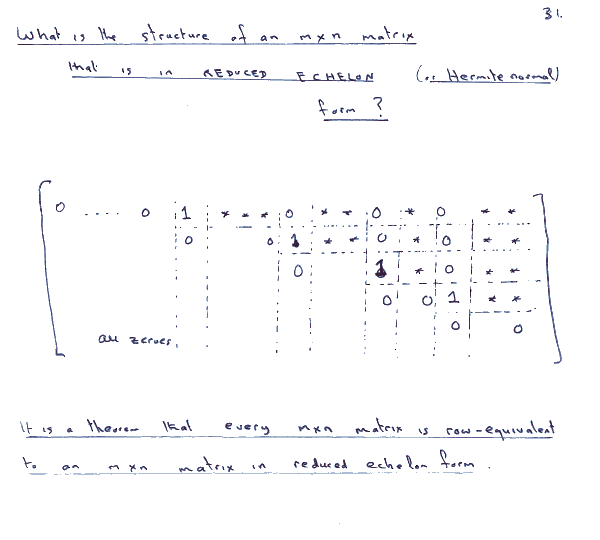 31.
What is the structure of an mxn matrix
that is in REDUCED ECHELON (or Hermite normal)
form ?
0 .... 0 1 * * * 0 * * 0 * 0 * *
0 0 1 * * 0 * 0 * *
0 1 * 0 * *
0 0 1 * *
0 0
all zeroes.
It is a theorem that every mxn matrix is row-equivalent
to an mxn matrix in reduced echelon form.